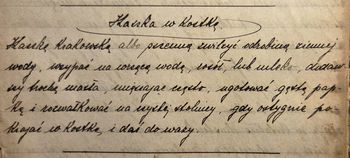 Kaszka w kostkę
Kaszkę krakowską albo pszenną zwilżyć odrobiną zimnej
wody, wsypać na wrzącą wodę, rosół, lub mleko, dodaw
szy trochę masła, mieszając często, ugotować gęstą pap-
kę i rozwałkować na czystej stolnicy, gdy ostygnie po
krajać w kostkę i dać do wazy.